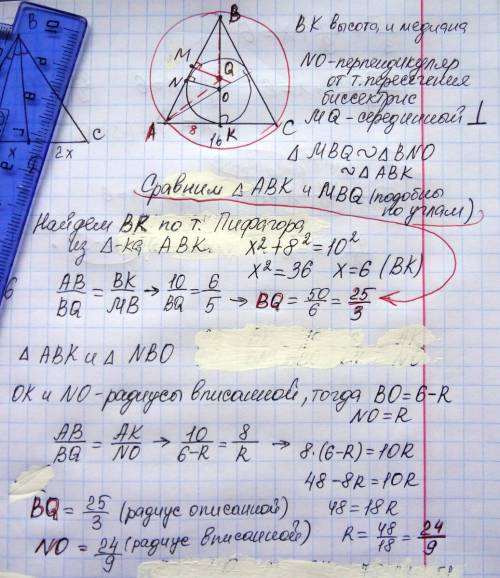 BK высота, и медиана
NO-перпендикуляр
от т. пересечения
биссектрис
MQ - серединный ⊥
△ MBQ ∾ △ BNO
∾ △ ABK
B
M
Q
N
O
A
8
K
16
C
B
C
x
2x
Сравним △ ABK и MBQ (подобны
по углам)
Найдем BK по т. Пифагора
из △-ка ABK.
x² + 8² = 10²
x² = 36 x = 6 (BK)
AB/BQ = BK/MB → 10/BQ = 6/5 → BQ = 50/6 = 25/3
△ ABK и △ NBO
OK и NO - радиусы вписанной, тогда BO = 6-R
NO = R
AB/BQ = AK/NO → 10/6-R = 8/R → 8·(6-R) = 10R
48 - 8R = 10R
48 = 18R
R = 48/18 = 24/9
BQ = 25/3 (радиус описанной)
NO = 24/9 (радиус вписанной)